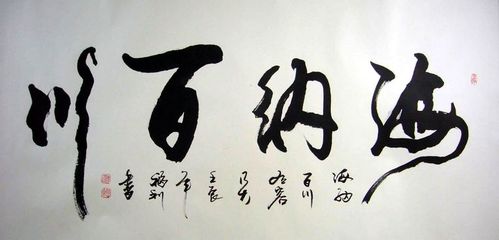 海纳百川
海纳
百川
有容
乃大
壬辰
书